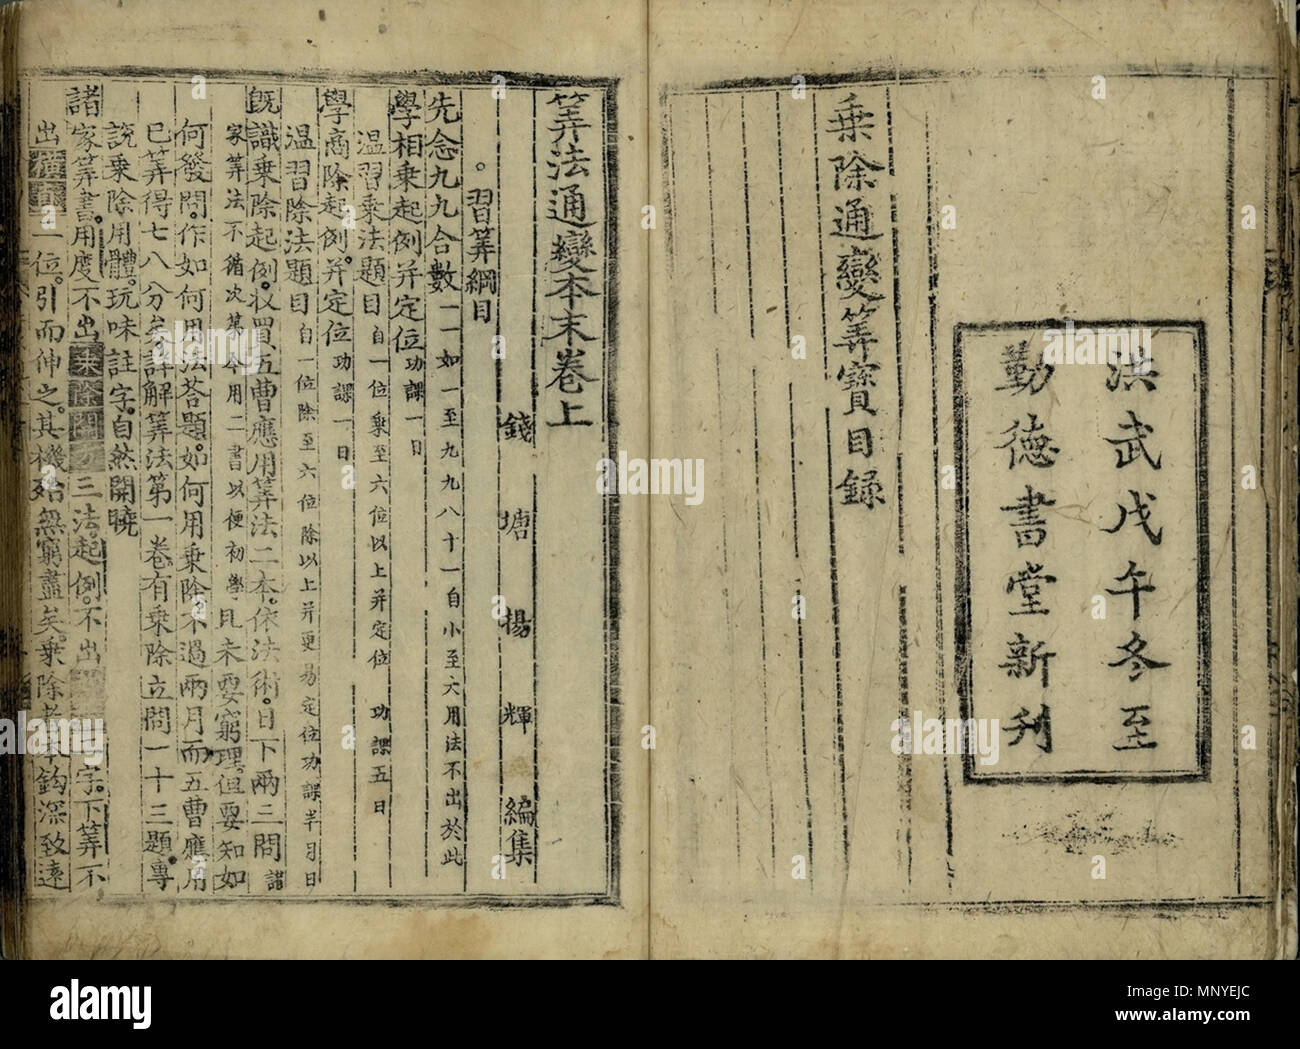 乗除通變筭寶目録
洪武戊午冬至
勤德書堂新刋
筭法通變本末卷上
錢塘楊輝編集
習筭綱目
先念九九合數一一如一至九九八十一自小至大用法不出於此
學相乗起例并定位功課一日
温習乗法題目自一位乗至六位以上并定位功課五日
學商除起例并定位功課一日
温習除法題目自一位除至六位除以上并更易定位功課半月日
旣識乗除起例收買五曹應用筭法二本。依法術。日下兩三問諸
家筭法不循次第今用二書以便初學且未要窮理但要知如
何發問。作如何用法荅題。如何用乗除。不過兩月而五曹應用
已筭得七八分矣詳解筭法第一卷有乗除立問一十三題專
說乗除用體。玩味註字。自然開曉
諸家筭書。用度不出乗除開方三法。起例。不出二字。下筭不
出二位。引而伸之。其機殆無窮盡矣乗除者本鈎深致遠
alamy
Image ID: MNYEJC
www.alamy.com